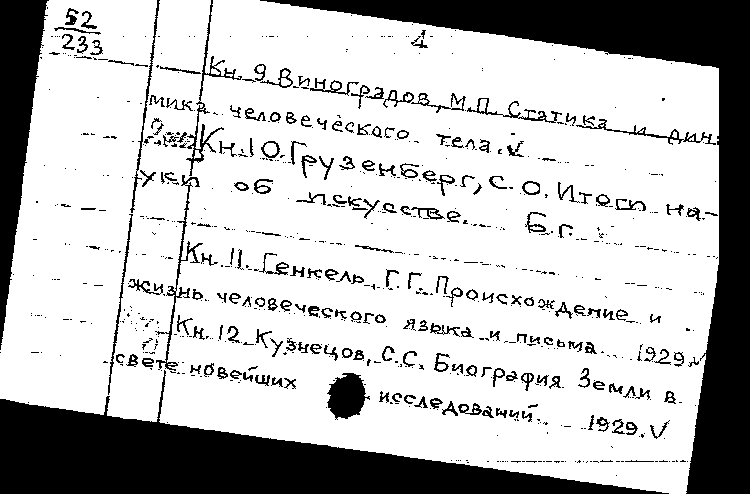 52
233
4
Кн. 9. Виноградов, М.П. Статика и дина-
мика человеческого тела. V
2 экз Кн. 10. Грузенберг, С.О. Итоги на-
уки об искусстве. Б.г.
Кн. 11. Генкель, Г.Г. Происхождение и
жизнь человеческого языка и письма. 1929. V
Кн. 12 Кузнецов, С.С. Биография Земли в
свете новейших исследований. 1929. V